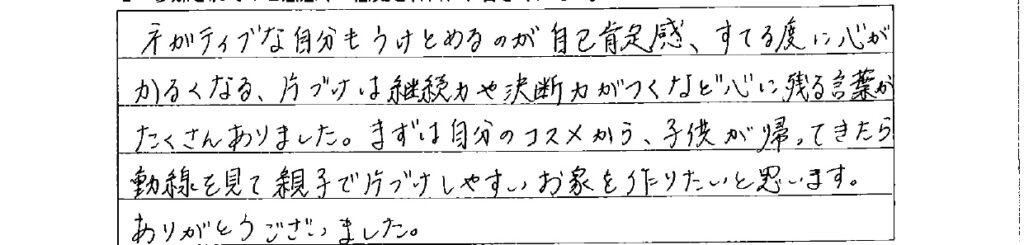 ネガティブな自分もうけとめるのが自己肯定感、すてる度に心が
かるくなる、片づけは継続力や決断力がつくなど心に残る言葉が
たくさんありました。まずは自分のコスメから、子供が帰ってきたら
動線を見て親子で片づけしやすいお家を作りたいと思います。
ありがとうございました。